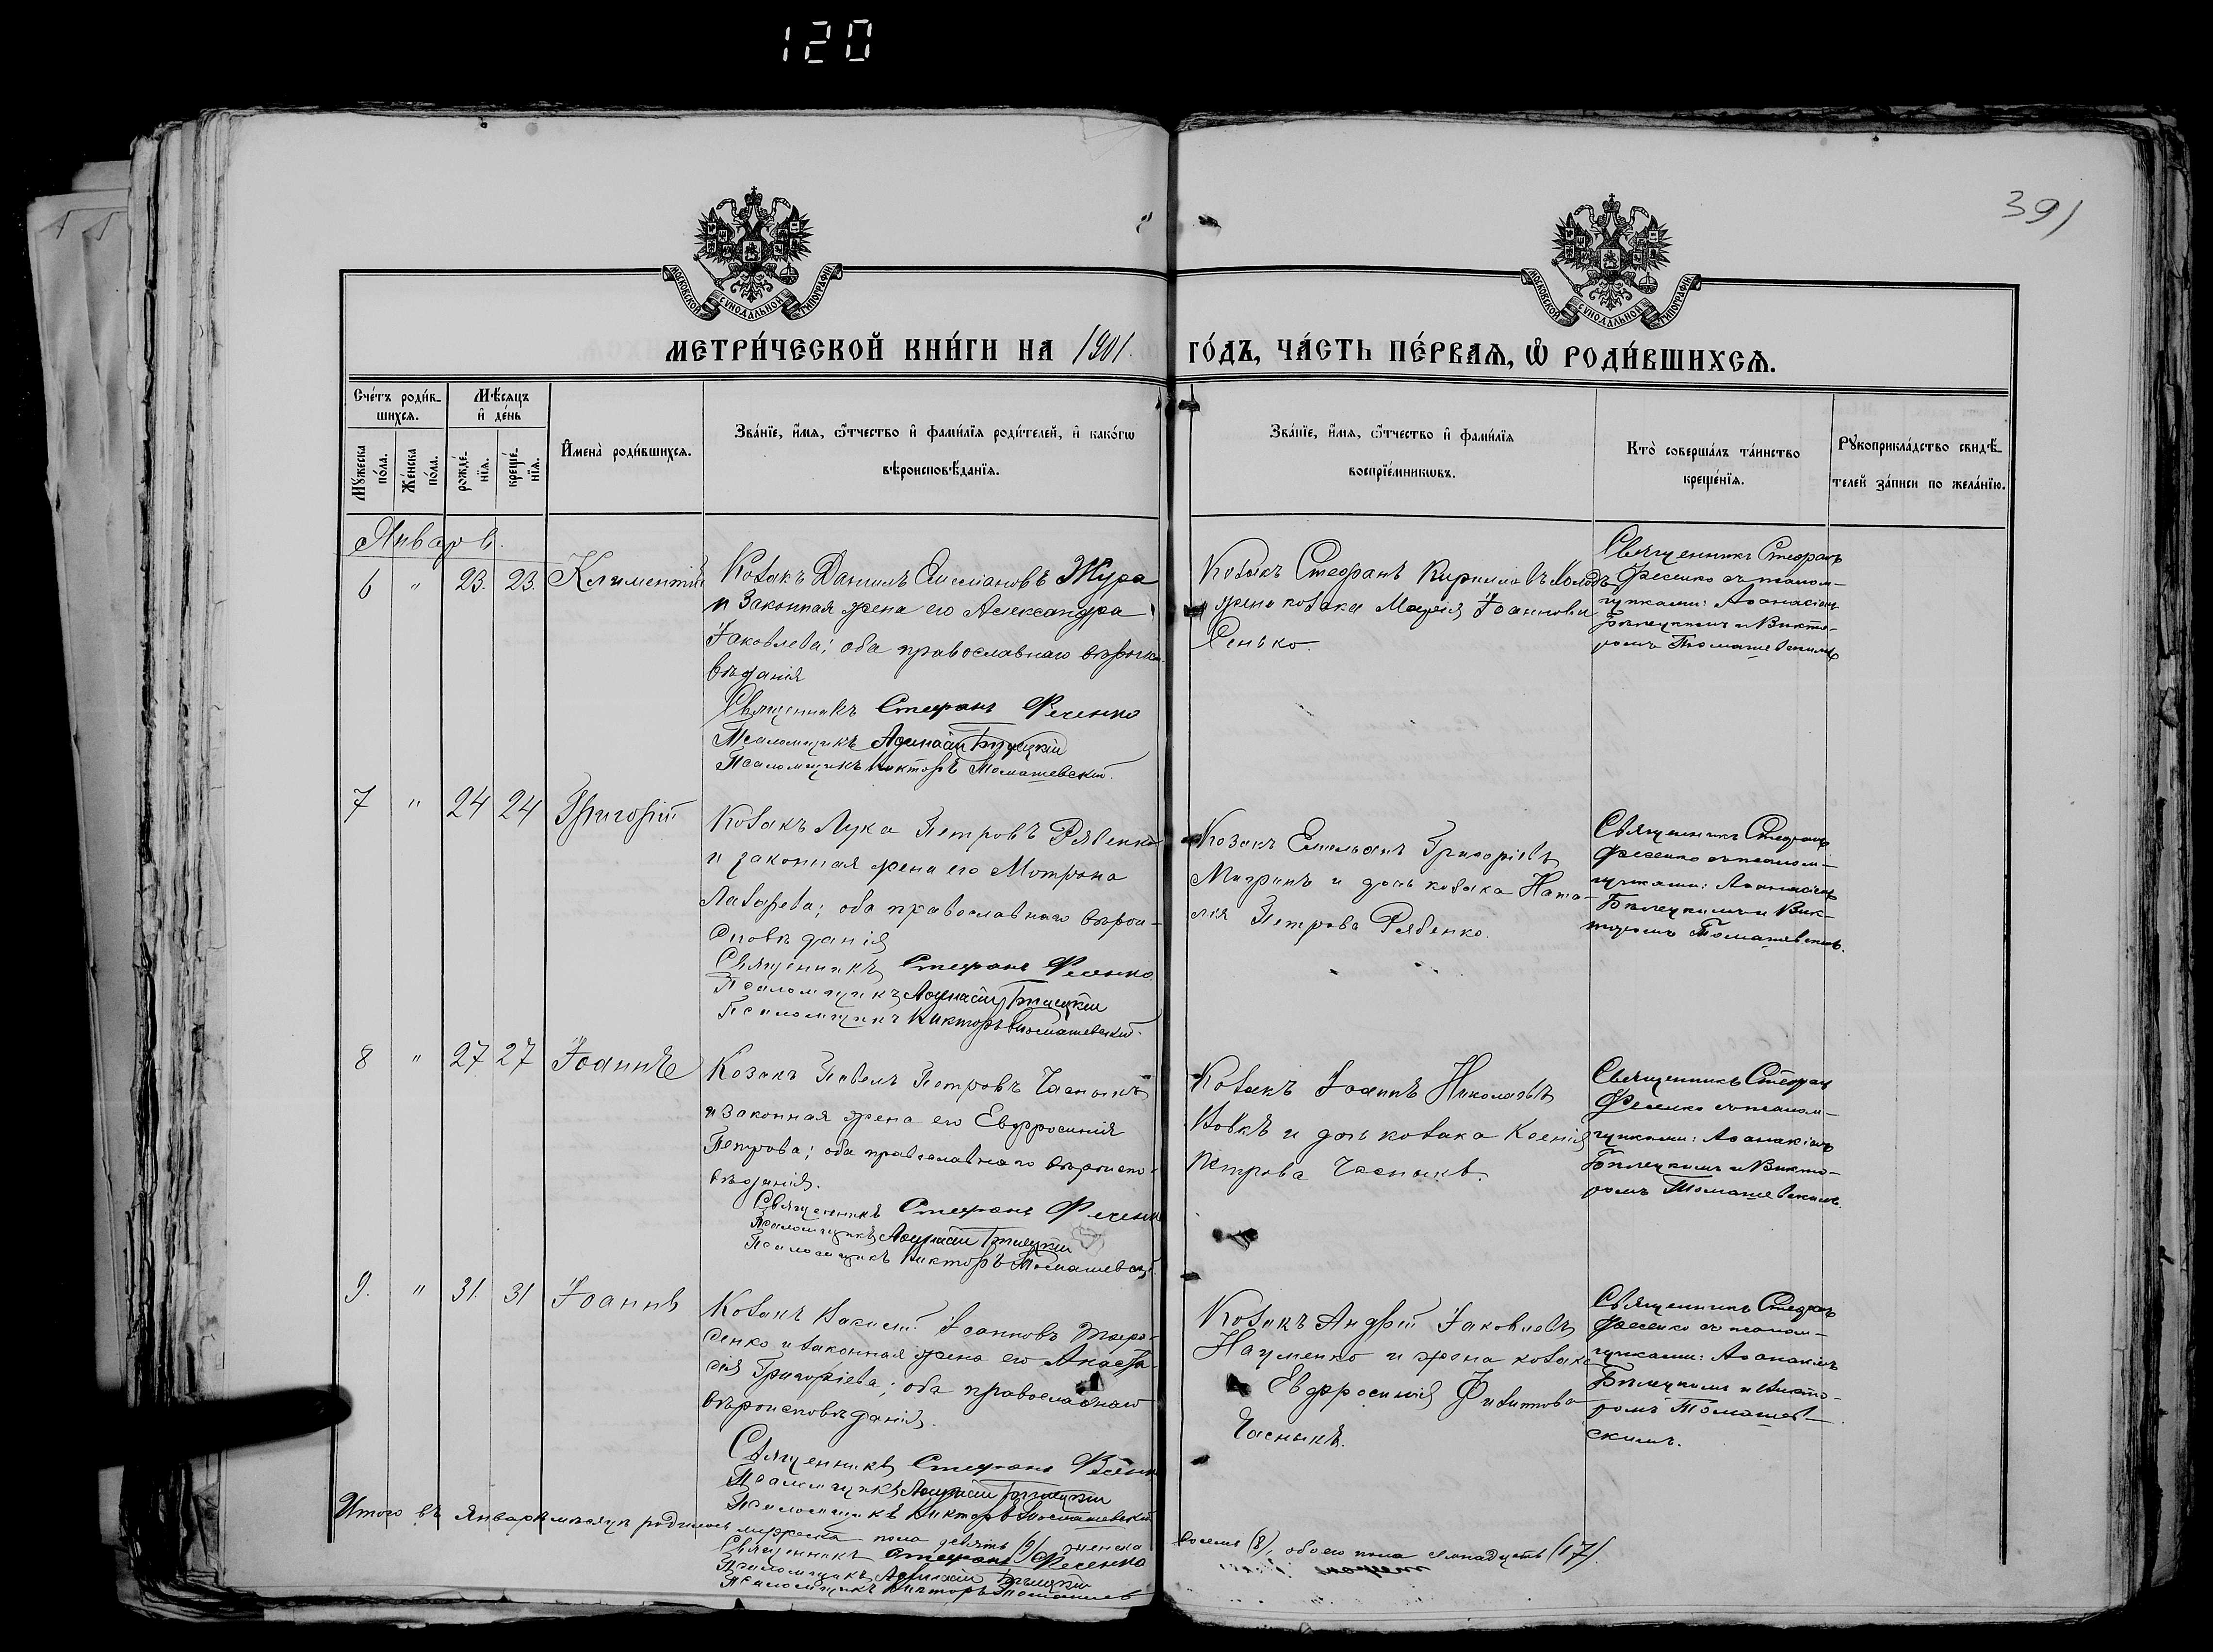 120
391
МОСКОВСКОЙ СѴНОДАЛЬНОЙ ТИПОГРАФІИ
МОСКОВСКОЙ СѴНОДАЛЬНОЙ ТИПОГРАФІИ
МЕТРИ́ЧЕСКОЙ КНИ́ГИ НА 1901.
ГО́ДЪ, ЧА́СТЬ ПЕ́РВАѦ, Ѽ РОДИ́ВШИХСѦ.
Сче́тъ роди́в-
шихсѧ.
Мꙋ́жеска
по́ла.
Же́нска
по́ла.
Мѣ́сѧцъ
и҆ де́нь
рожде́-
нїѧ.
креще́-
нїѧ.
И҆мена̀ роди́вшихсѧ.
Зва́нїе, и҆́мѧ, ѻ҆́тчество и҆ фами́лїѧ роди́телей, и҆ како́гѡ
вѣроисповѣ́данїѧ.
Зва́нїе, и҆́мѧ, ѻ҆́тчество и҆ фами́лїѧ
воспрїе́мникѡвъ.
Кто̀ соверша́лъ та́инство
креще́нїѧ.
Рꙋкоприкла́дство свидѣ́-
телей за́писи по жела́нїю.
Январь.
6 " 23. 23. Климентій
Козакъ Даніилъ Жура
и законная жена его Александра
Іаковлева; оба православнаго вѣроиспо-
вѣданія
Священникъ Стефанъ Фесенко
Псаломщикъ Аѳанасій Бѣлецкій
Псаломщикъ Викторъ Томашевскій.
Козакъ Стефанъ Кирилловъ
жена козака Марія Іоаннова
Сенько.
Священникъ Стефанъ
Фесенко съ псалом-
щиками: Аѳанасіемъ
Бѣлецкимъ и Викто-
ромъ Томашевскимъ
7 " 24 24 Григорій
Козакъ Лука Петровъ Рябенко
и законная жена его Мотрона
Лазарева; оба православнаго вѣрои-
сповѣданія
Священникъ Стефанъ Фесенко
Псаломщикъ Аѳанасій Бѣлецкій
Псаломщикъ Викторъ Томашевскій.
Козакъ Емельянъ Григоріевъ
и дочь козака Ната-
лія Петрова Рябенко.
Священникъ Стефанъ
Фесенко съ псалом-
щиками: Аѳанасіемъ
Бѣлецкимъ и Вик-
торомъ Томашевскимъ.
8 " 27 27 Іоаннъ
Козакъ Павелъ Петровъ Часныкъ
и законная жена его Евфросинія
Петрова; оба православнаго вѣроиспо-
вѣданія.
Священникъ Стефанъ Фесенко
Псаломщикъ Аѳанасій Бѣлецкій
Псаломщикъ Викторъ Томашевскій.
Козакъ Іоаннъ Николаевъ
Вовкъ и дочь козака Ксенія
Петрова Часныкъ.
Священникъ Стефанъ
Фесенко съ псалом-
щиками: Аѳанасіемъ
Бѣлецкимъ и Викто-
ромъ Томашевскимъ.
9. " 31. 31 Іоаннъ
Козакъ Іоанновъ Тара-
сенко и законная жена его Анаста-
сія Григоріева; оба православнаго
вѣроисповѣданія.
Священникъ Стефанъ Фесенко
Псаломщикъ Аѳанасій Бѣлецкій
Псаломщикъ Викторъ Томашевскій
Козакъ Андрей Іаковлевъ
Науменко и жена козака
Евфросинія
Часныкъ.
Священникъ Стефанъ
Фесенко съ псалом-
щиками: Аѳанасіемъ
Бѣлецкимъ и Викто-
ромъ Томашев-
скимъ.
Итого въ Январѣ мѣсяцѣ родилось мужеска пола девять (9) женска
восемь (8), обоего пола семнадцать (17).
Священникъ Стефанъ Фесенко
Псаломщикъ Аѳанасій Бѣлецкій
Псаломщикъ Викторъ Томашев